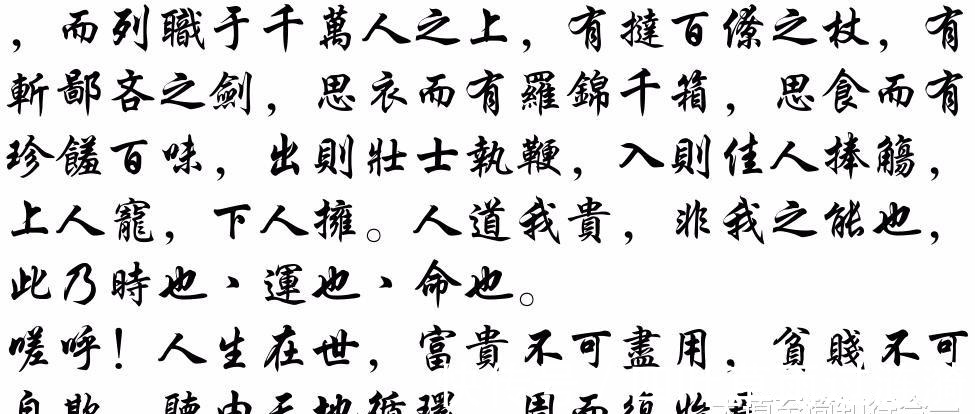 ，而列職于千萬人之上，有撻百僚之杖，有
斬鄙吝之劍，思衣而有羅錦千箱，思食而有
珍饈百味，出則壯士執鞭，入則佳人捧觴，
上人寵，下人擁。人道我貴，非我之能也，
此乃時也、運也、命也。
嗟呼！人生在世，富貴不可盡用，貧賤不可
自欺，聽由天地循環，周而復始